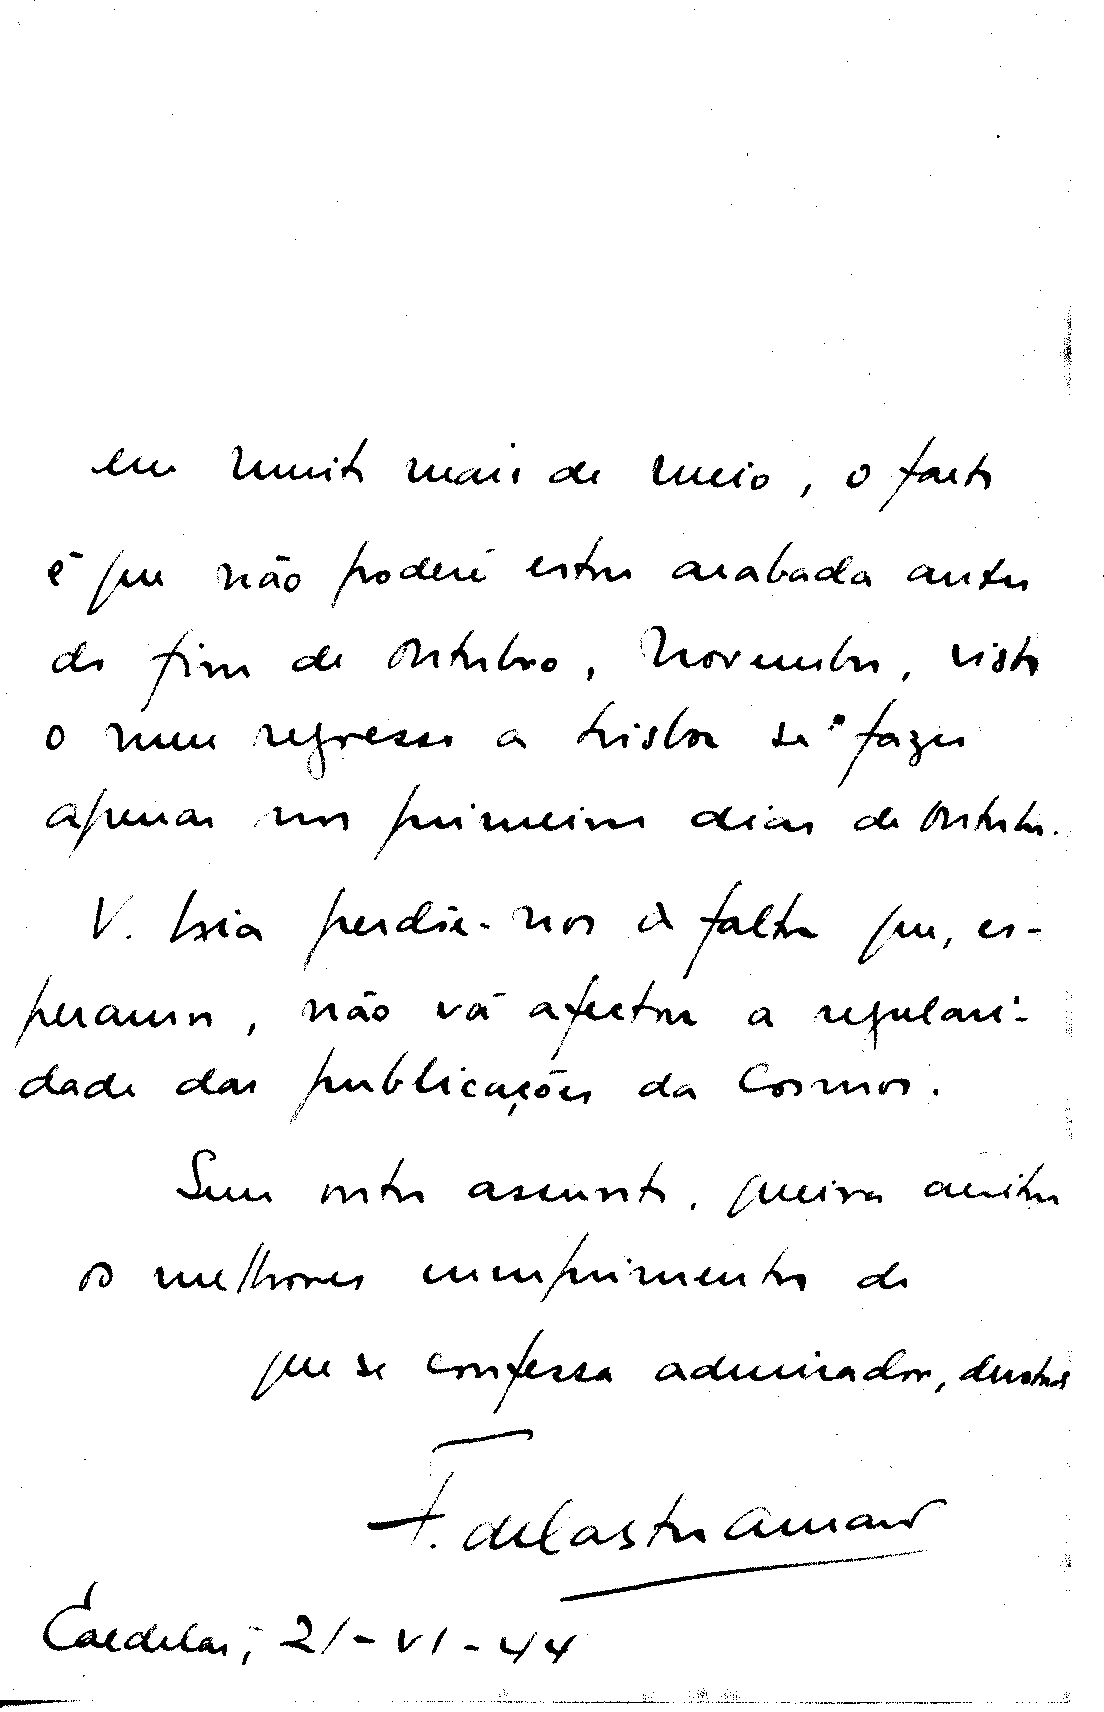 em muito mais de meio, o facto
é que não poderá estar acabada antes
do fim de Outubro, Novembro, visto
o meu regresso a Lisboa se fazer
apenas nos primeiros dias de Outubro.
V. Excia perdôe-nos a falta que, es-
peramos, não vá afectar a regulari-
dade das publicações da Cosmos.
Sem outro assunto, queira aceitar
os melhores cumprimentos do
que se confessa admirador,
F. de Castro Amaro
Caldelas, 21-VI-44